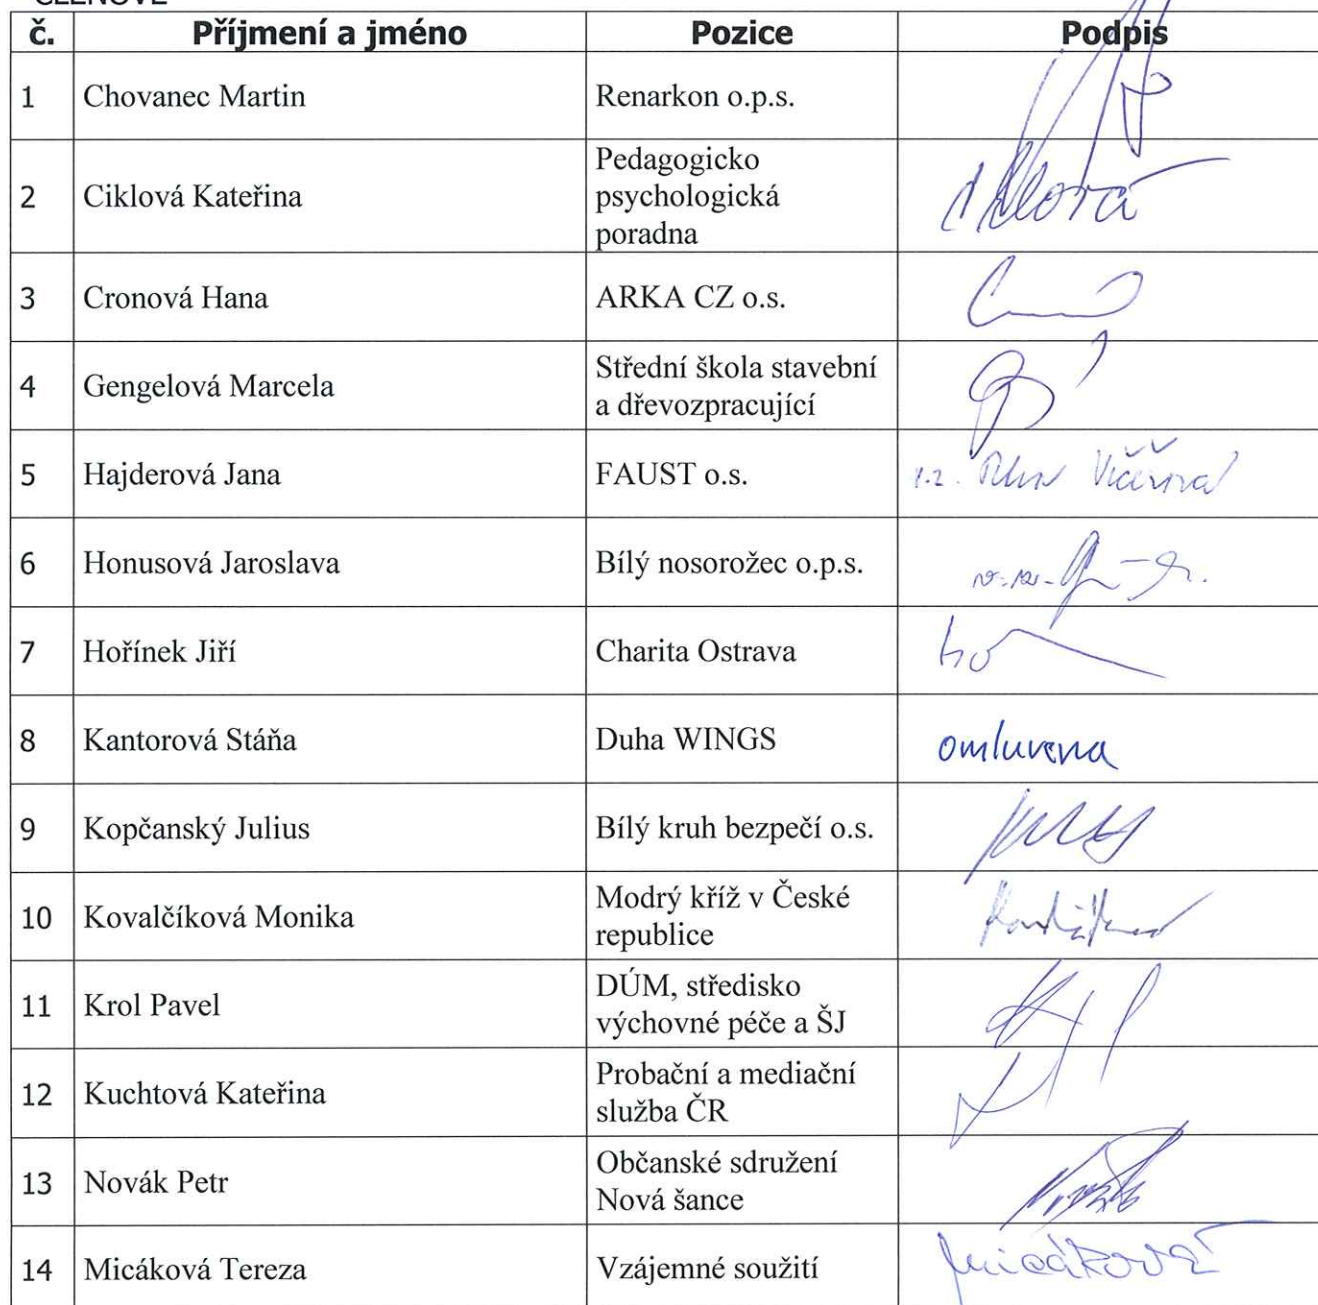 ČLENOVÉ
č. Příjmení a jméno Pozice Podpis
1 Chovanec Martin Renarkon o.p.s.
2 Ciklová Kateřina Pedagogicko
psychologická
poradna
3 Cronová Hana ARKA CZ o.s.
4 Gengelová Marcela Střední škola stavební
a dřevozpracující
5 Hajderová Jana FAUST o.s.
6 Honusová Jaroslava Bílý nosorožec o.p.s.
7 Hořínek Jiří Charita Ostrava
8 Kantorová Stáňa Duha WINGS omluvena
9 Kopčanský Julius Bílý kruh bezpečí o.s.
10 Kovalčíková Monika Modrý kříž v České
republice
11 Krol Pavel DÚM, středisko
výchovné péče a ŠJ
12 Kuchtová Kateřina Probační a mediační
služba ČR
13 Novák Petr Občanské sdružení
Nová šance
14 Micáková Tereza Vzájemné soužití Micáková